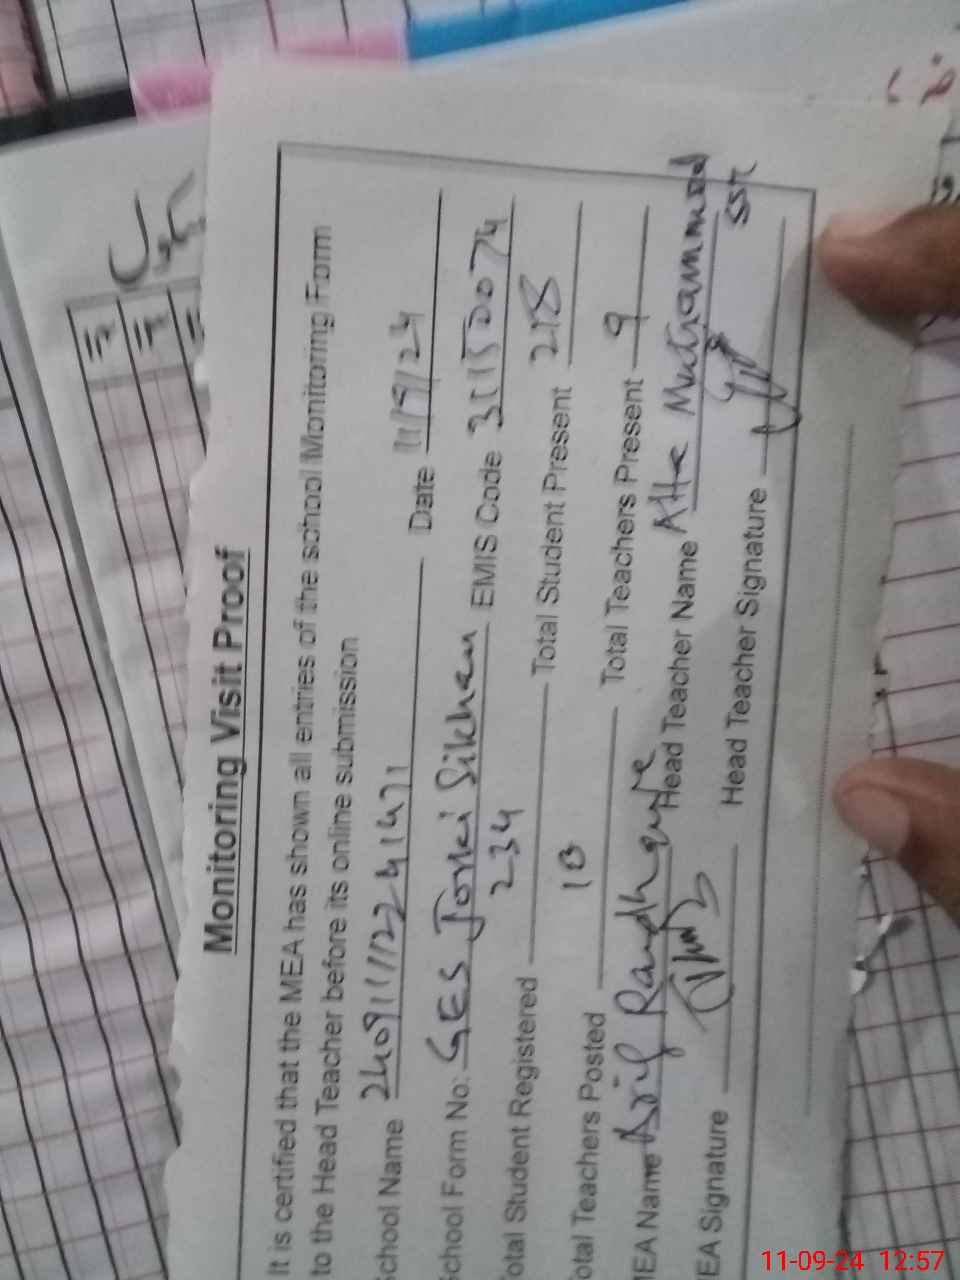 Monitoring Visit Proof
It is certified that the MEA has shown all entries of the school Monitoring Form
to the Head Teacher before its online submission
School Name 24091112241471 Date 11/9/24
School Form No: GES Torki Sikhan EMIS Code 31150074
Total Student Registered 234 Total Student Present 218
Total Teachers Posted 10 Total Teachers Present 9
MEA Name Arif Randhawa Head Teacher Name Atta Muhammad
MEA Signature Head Teacher Signature SST
11-09-24 12:57